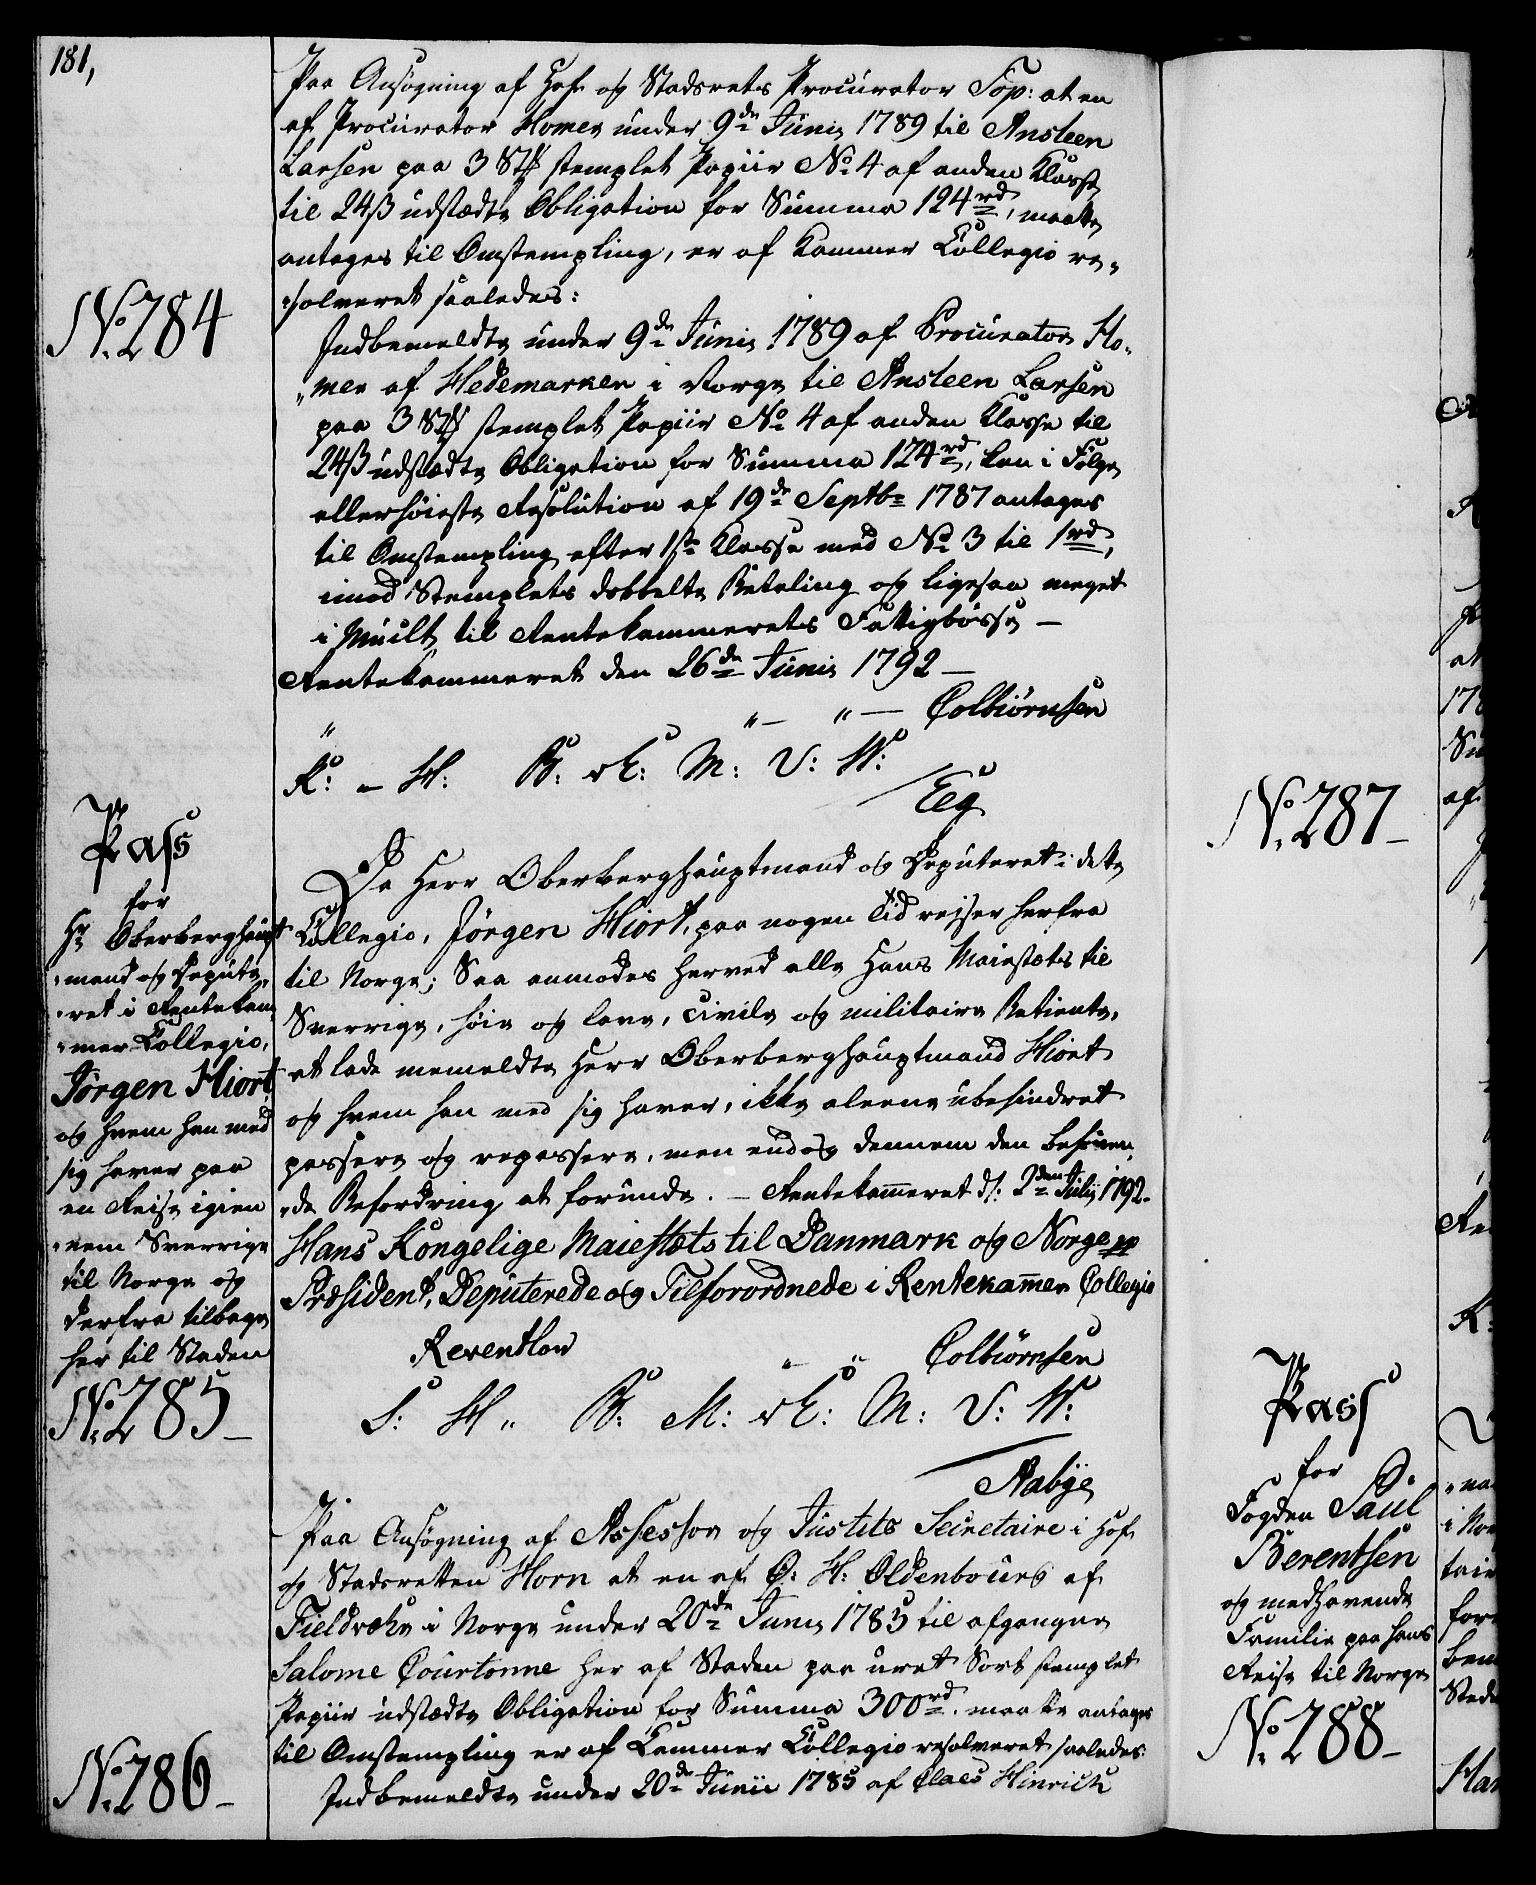 181,
Paa Ansøgning af Hof og Stadsrets Procurator Top: at en
af Procurator Homen under 9de Junii 1789 til Ansteen
Larsen paa 3 Stk stemplet Papiir No 4 af anden Klasse
til 24 ß udstædte Obligation for Summa 124 rd, maatte
antages til Omstempling, er af Kammer Collegio re-
No. 284
solveret saaledes:
Indbemeldte under 9de Junii 1789 af Procurator Ho-
"men af Hedemarken i Norge til Ansteen Larsen
paa 3 Stk stemplet Papiir No 4 af anden Klasse til
24 ß udstædte Obligation for Summa 124 rd, kan i Følge
allerhøieste Resolution af 19de Septbr 1787 antages
til Omstempling efter 1ste Klasse med No 3 til 1 rd,
imod Stemplets dobbelte Betaling og ligesaa meget
i Mulct til Rentekammerets Fattigbøsse —
Rentekammeret den 26de Junii 1792 —
" — " — Colbiørnsen
"
R: - H: B: M: V: W:
Pass
for
Hr Oberberghaupt
"mand og Deputə-
"ret i Rentekam
"mer Collegio,
Jørgen Hiort
og hvem han med
sig haver paa
en Reise igien
"nem Sverrige
til Norge og
derfra tilbage
her til Staden
No. 285 —
Da Herr Oberberghauptmand og Deputeret i dette
Collegio, Jörgen Hiort, paa nogen Tid reiser herfra
til Norge; Saa anmodes herved alle Hans Maiestæts til
Sverrige, høie og lave, civile og militaire Betiente,
at lade memeldte Herr Oberberghauptmand Hiort
og hvem han med sig haver, ikke aleene ubehindret
passere og repassere, men endog dennem den behøven-
"de Befordring at forunde. — Rentekam̅eret d: 2den Julii 1792.
Hans Kongelige Maiestæts til Danmark og Norge pp
Præsident, Deputerede og Tilforordnede i Rentekam̅er Collegio
Reventlow " " Colbiørnsen
S: H " B: M: M: V: W:
Aabye
Paa Ansøgning af Assessor og Justits Secretaire i Hof
og Stadsretten Horn at en af C: H: Oldenbourg af
Fieldvær i Norge under 20de Junii 1785 til afgangne
Salome Courtonne her af Staden paa uret Sort stemplet
Papiir udstædte Obligation for Summa 300 rd. maatte antages
til Omstempling er af Kammer Collegio resolveret saaledes:
No. 286 —
Indbemeldte under 20de Junii 1785 af Claes Hinrich
No. 287 —
Pass
for
Fogden Paul
Berentsen
og medhavende
Familie paa hans
Reise til Norge
No. 288 —